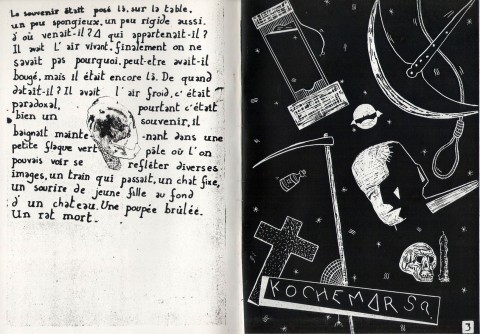 Le souvenir était posé là, sur la table.
un peu spongieux, un peu rigide aussi.
D'où venait-il ? A qui appartenait-il ?
Il avait l'air vivant, finalement on ne
savait pas pourquoi, peut-etre avait-il
bougé, mais il était encore là. De quand
datait-il ? Il avait l'air froid, c'était
paradoxal, pourtant c'était
bien un souvenir, il
baignait mainte -nant dans une
petite flaque vert pâle où l'on
pouvais voir se reflèter diverses
images, un train qui passait, un chat fixe,
un sourire de jeune fille au fond
d'un chateau. Une poupée brûlée.
Un rat mort.
KOCHEMARSQ.
3